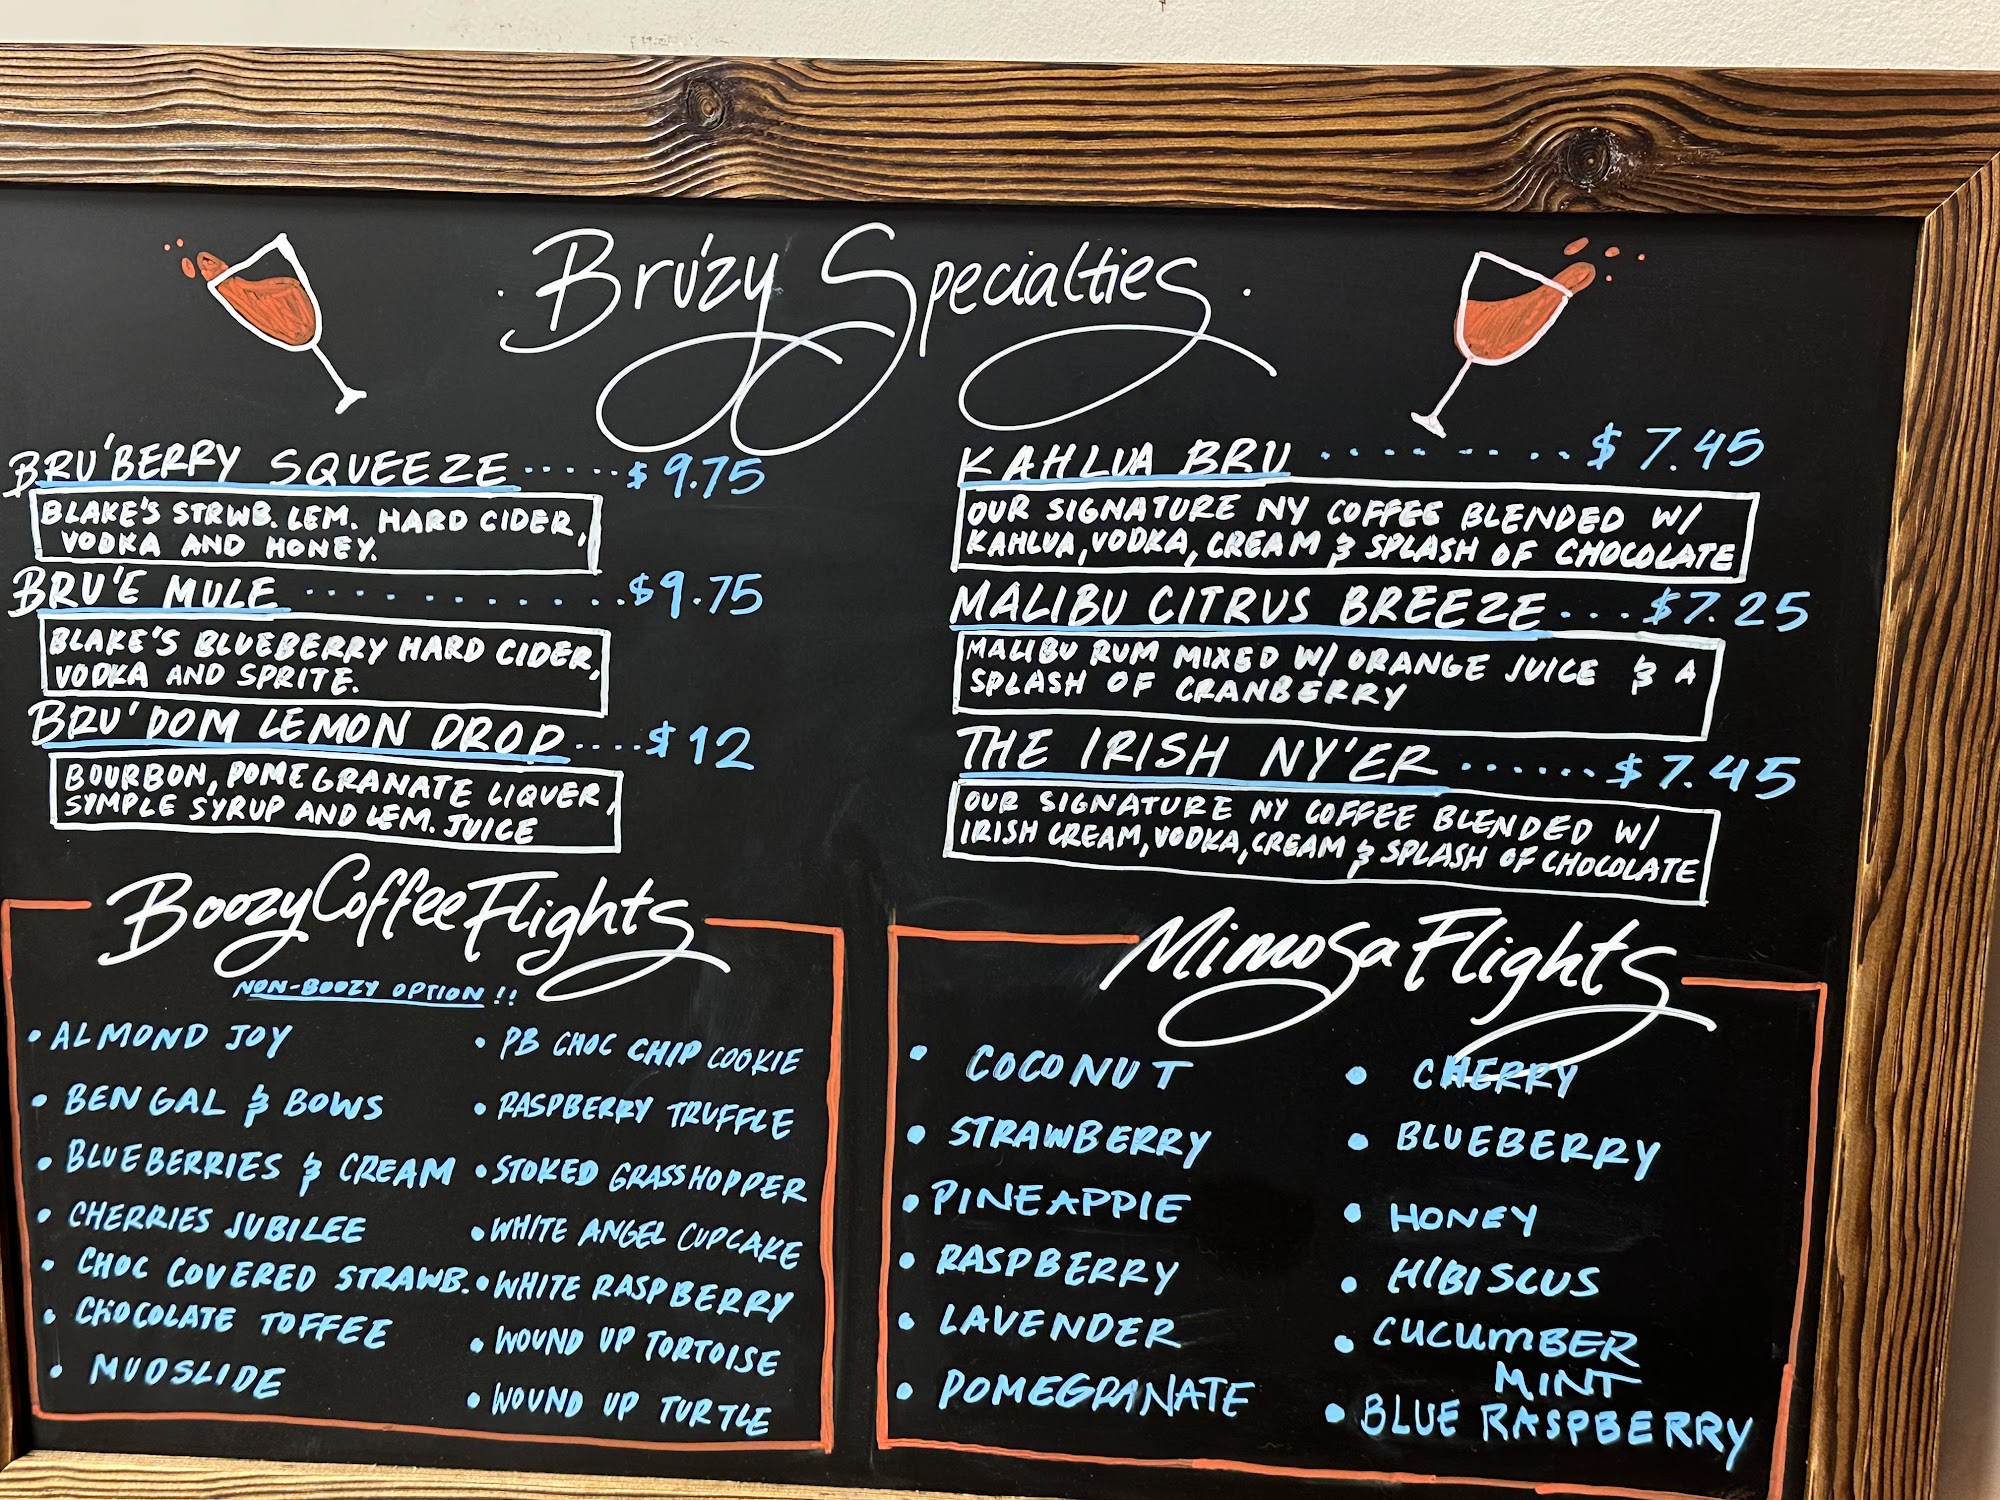 Bru'zy Specialties
BRU'BERRY SQUEEZE ..... $9.75
BLAKE'S STRWB. LEM. HARD CIDER,
VODKA AND HONEY.
BRU'E MULE ............ $9.75
BLAKE'S BLUEBERRY HARD CIDER,
VODKA AND SPRITE.
BRU'DOM LEMON DROP .... $12
BOURBON, POMEGRANATE LIQUER,
SYMPLE SYRUP AND LEM. JUICE
KAHLUA BRU ......... $7.45
OUR SIGNATURE NY COFFEE BLENDED W/
KAHLUA, VODKA, CREAM & SPLASH OF CHOCOLATE
MALIBU CITRUS BREEZE .... $7.25
MALIBU RUM MIXED W/ ORANGE JUICE & A
SPLASH OF CRANBERRY
THE IRISH NY'ER ...... $7.45
OUR SIGNATURE NY COFFEE BLENDED W/
IRISH CREAM, VODKA, CREAM & SPLASH OF CHOCOLATE
Boozy Coffee Flights
NON-BOOZY OPTION!!
• ALMOND JOY
• BENGAL & BOWS
• BLUEBERRIES & CREAM
• CHERRIES JUBILEE
• CHOC COVERED STRAWB.
• CHOCOLATE TOFFEE
• MUDSLIDE
• PB CHOC CHIP COOKIE
• RASPBERRY TRUFFLE
• STOKED GRASSHOPPER
• WHITE ANGEL CUPCAKE
• WHITE RASPBERRY
• WOUND UP TORTOISE
• WOUND UP TURTLE
Mimosa Flights
• COCONUT
• STRAWBERRY
• PINEAPPIE
• RASPBERRY
• LAVENDER
• POMEGRANATE
• CHERRY
• BLUEBERRY
• HONEY
• HIBISCUS
• CUCUMBER
MINT
• BLUE RASPBERRY